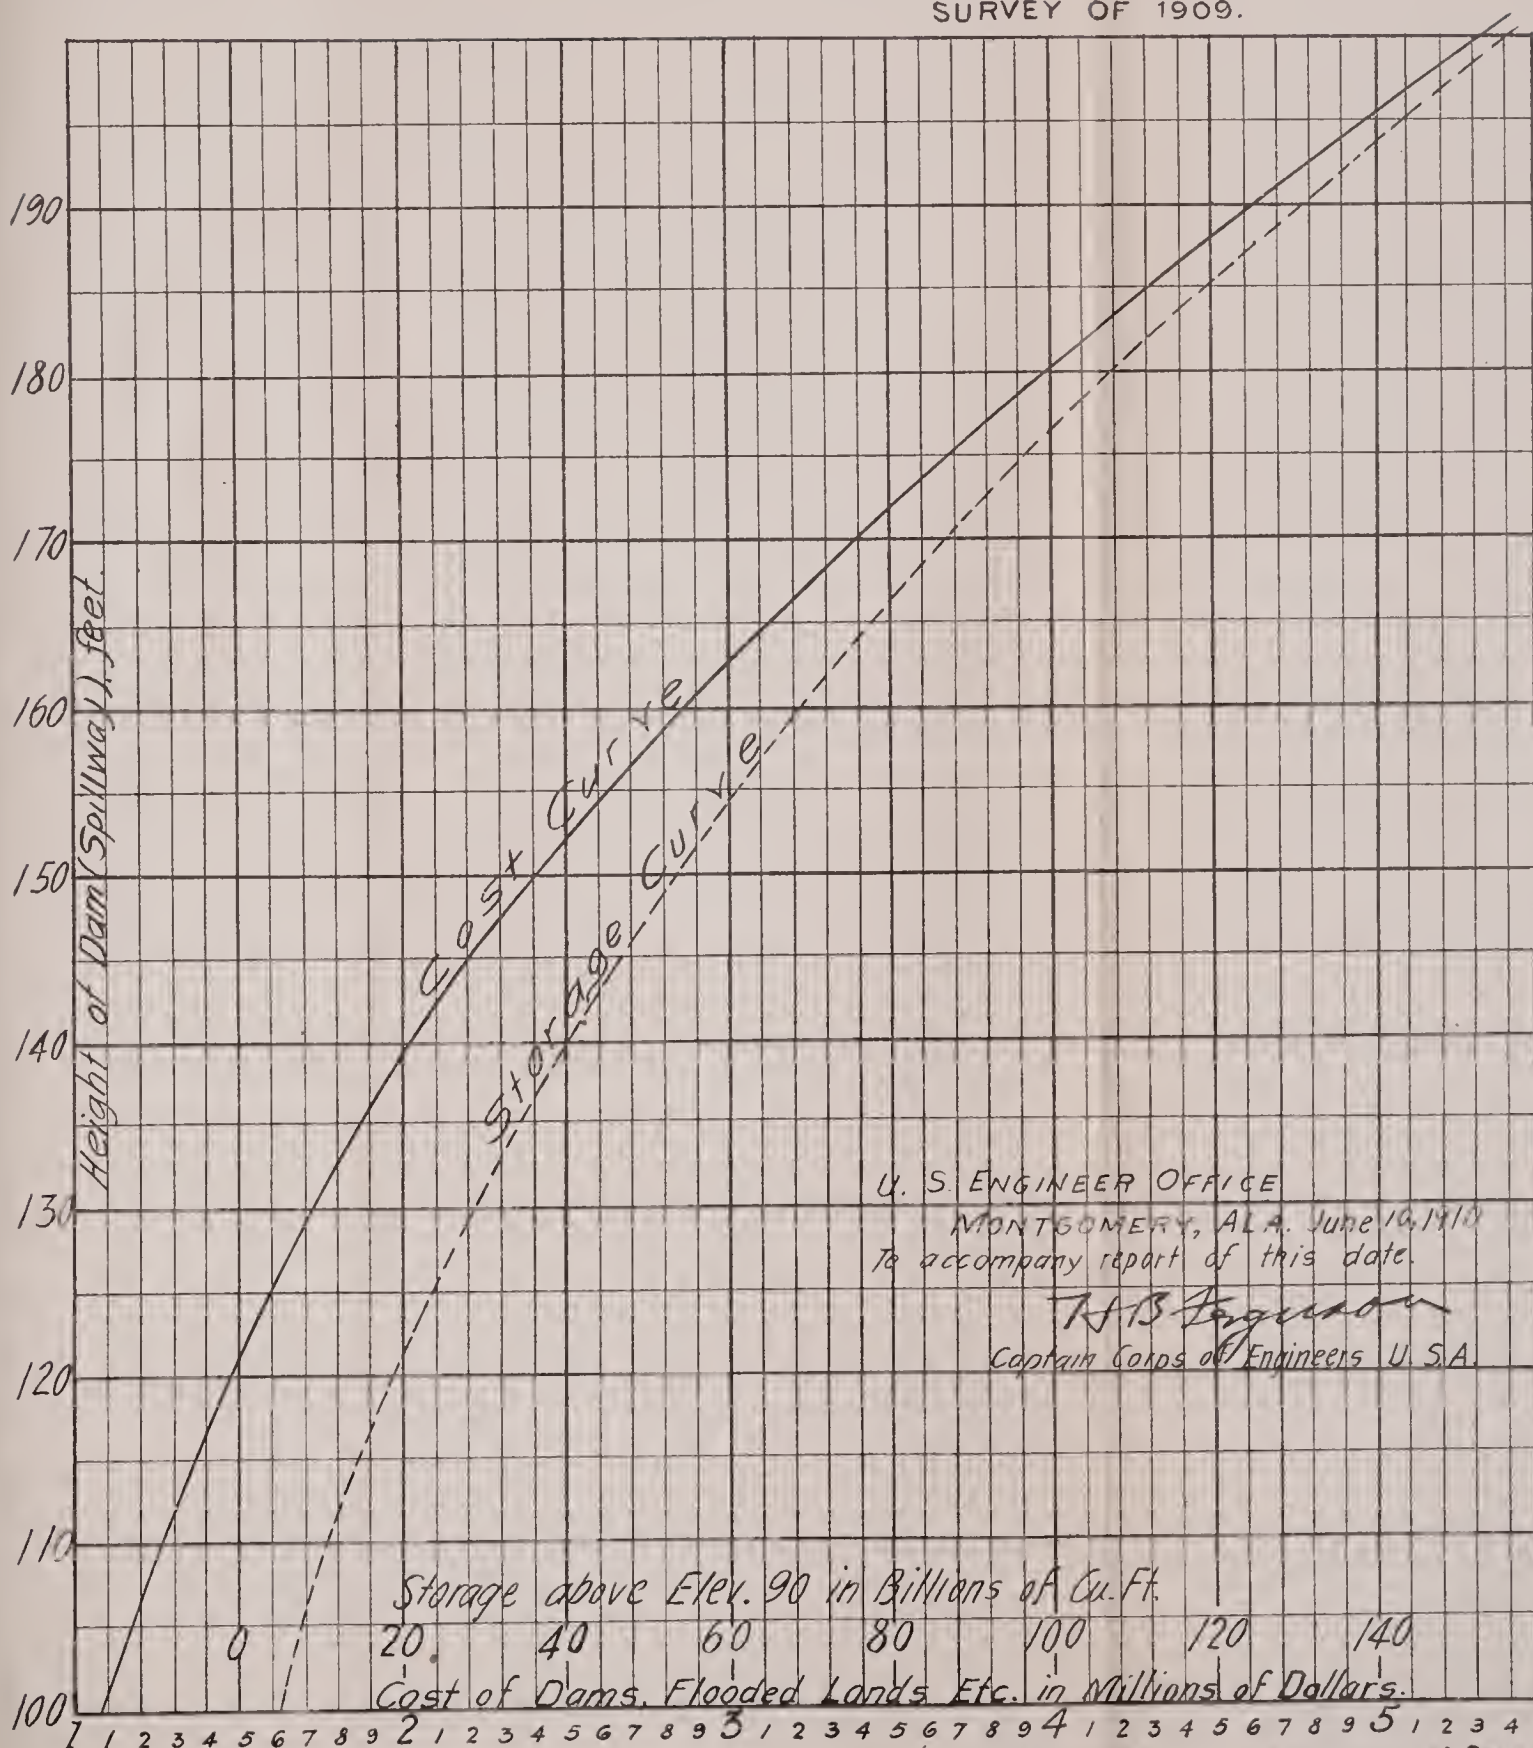 SURVEY OF 1909.
190
180
170
160
150
140
130
120
110
100
Height of Dam (Spillway), feet.
Cost Curve
Storage Curve
U. S. ENGINEER OFFICE
MONTGOMERY, ALA. June 10, 1910
To accompany report of this date.
H B Ferguson
Captain Corps of Engineers U. S. A.
Storage above Elev. 90 in Billions of Cu. Ft.
0 20 40 60 80 100 120 140
Cost of Dams, Flooded Lands Etc. in Millions of Dollars.
1 1 2 3 4 5 6 7 8 9 2 1 2 3 4 5 6 7 8 9 3 1 2 3 4 5 6 7 8 9 4 1 2 3 4 5 6 7 8 9 5 1 2 3 4